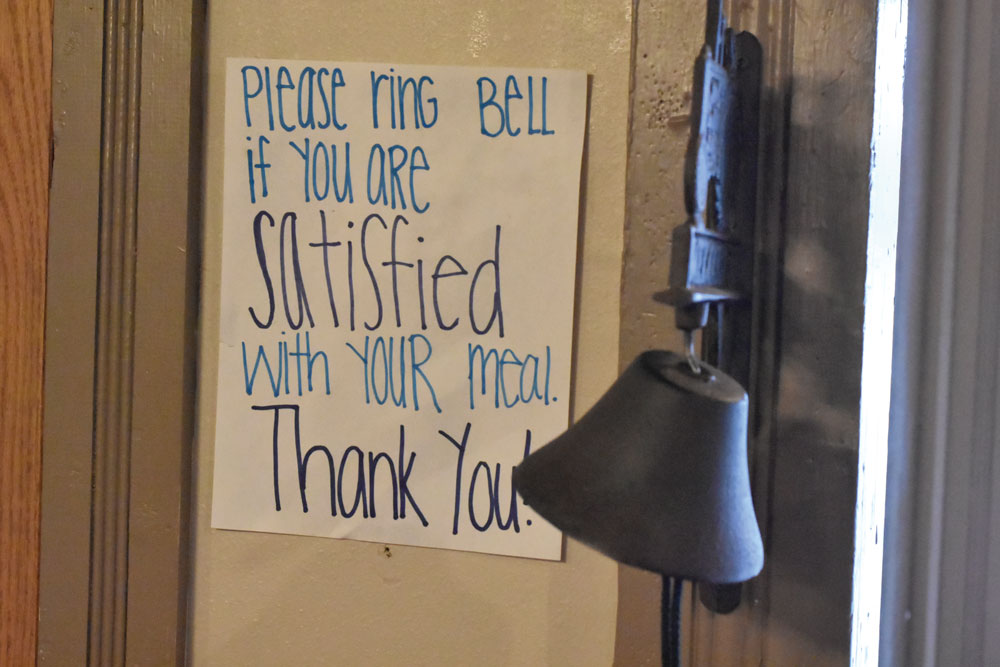 Please ring BELL
if YOU ARE
satisfied
with YOUR meal.
Thank You!